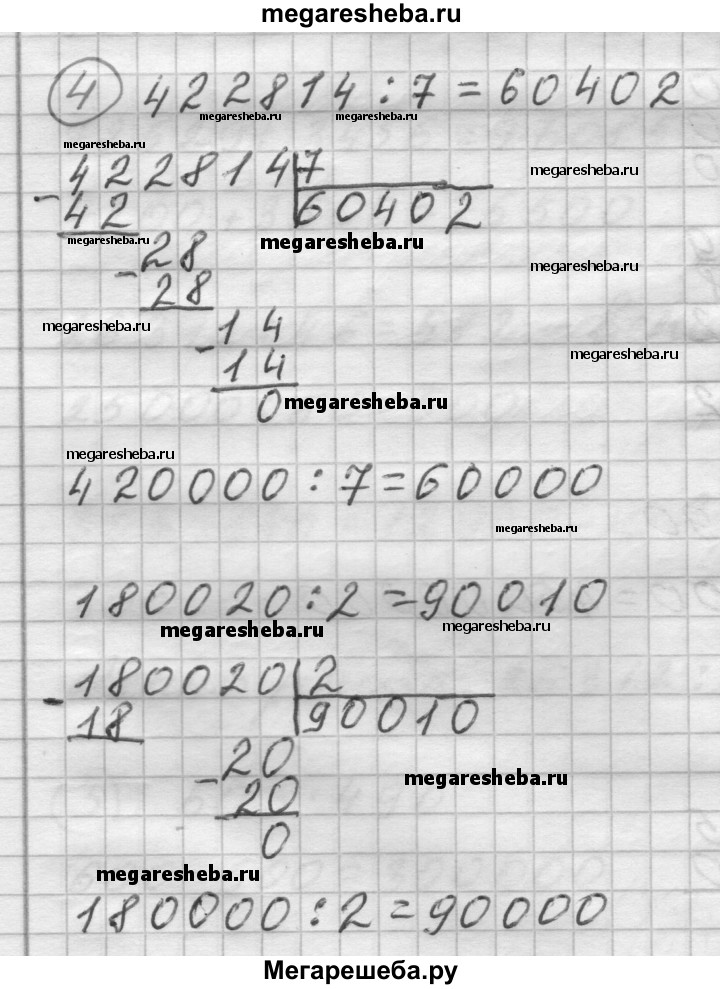 megaresheba.ru
4 422814 : 7 = 60402
megaresheba.ru megaresheba.ru
megaresheba.ru
422814 7
megaresheba.ru
- 42 60402
megaresheba.ru megaresheba.ru
- 28
megaresheba.ru
28
megaresheba.ru
14
- 14
megaresheba.ru
0 megaresheba.ru
megaresheba.ru
420000 : 7 = 60000
megaresheba.ru
180020 : 2 = 90010
megaresheba.ru megaresheba.ru
- 180020 2
18 90010
20
- 20
megaresheba.ru
0
megaresheba.ru
180000 : 2 = 90000
Мегарешеба.ру